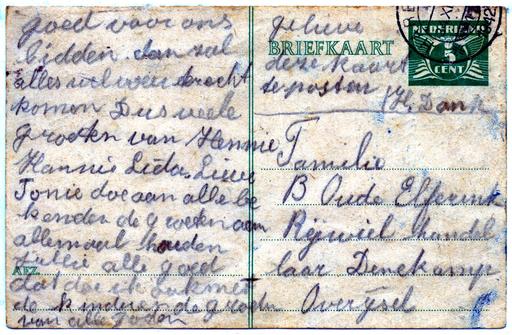 goed voor ons
bidden dan zal
alles wel weer terecht
komen Dus vele
groeten van Hennie
Hannie Lida. Lieve
Tonie doe aan alle be
kenden de groeten aan
allemaal houden
jullie alle goed
dat doe ik ook met
de kinderen de groeten
van alle goden
AFZ.
gelieve
BRIEFKAART
deze kaart
te posten
(H. Dank
NEDERLAND
5
CENT
Familie
B Oude Elferink
Rijwiel handel
laar Denekamp
Overijsel